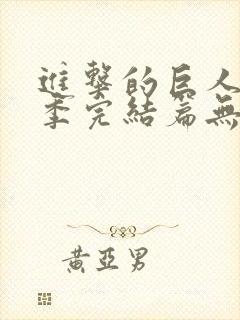 進擊的巨人
季完結篇無
黃亞男